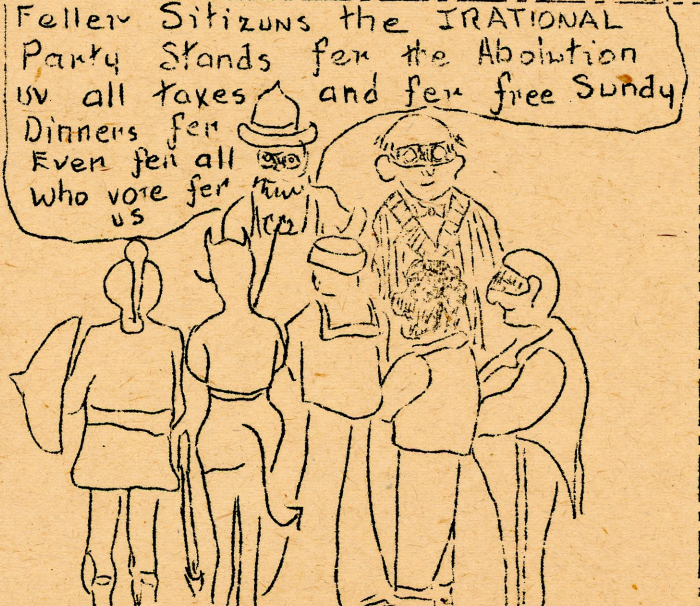 Feller Sitizuns the IRATIONAL
Party Stands fer the Abolution
uv all taxes and fer free Sundy
Dinners fer
Ever fer all
Who vote fer
us